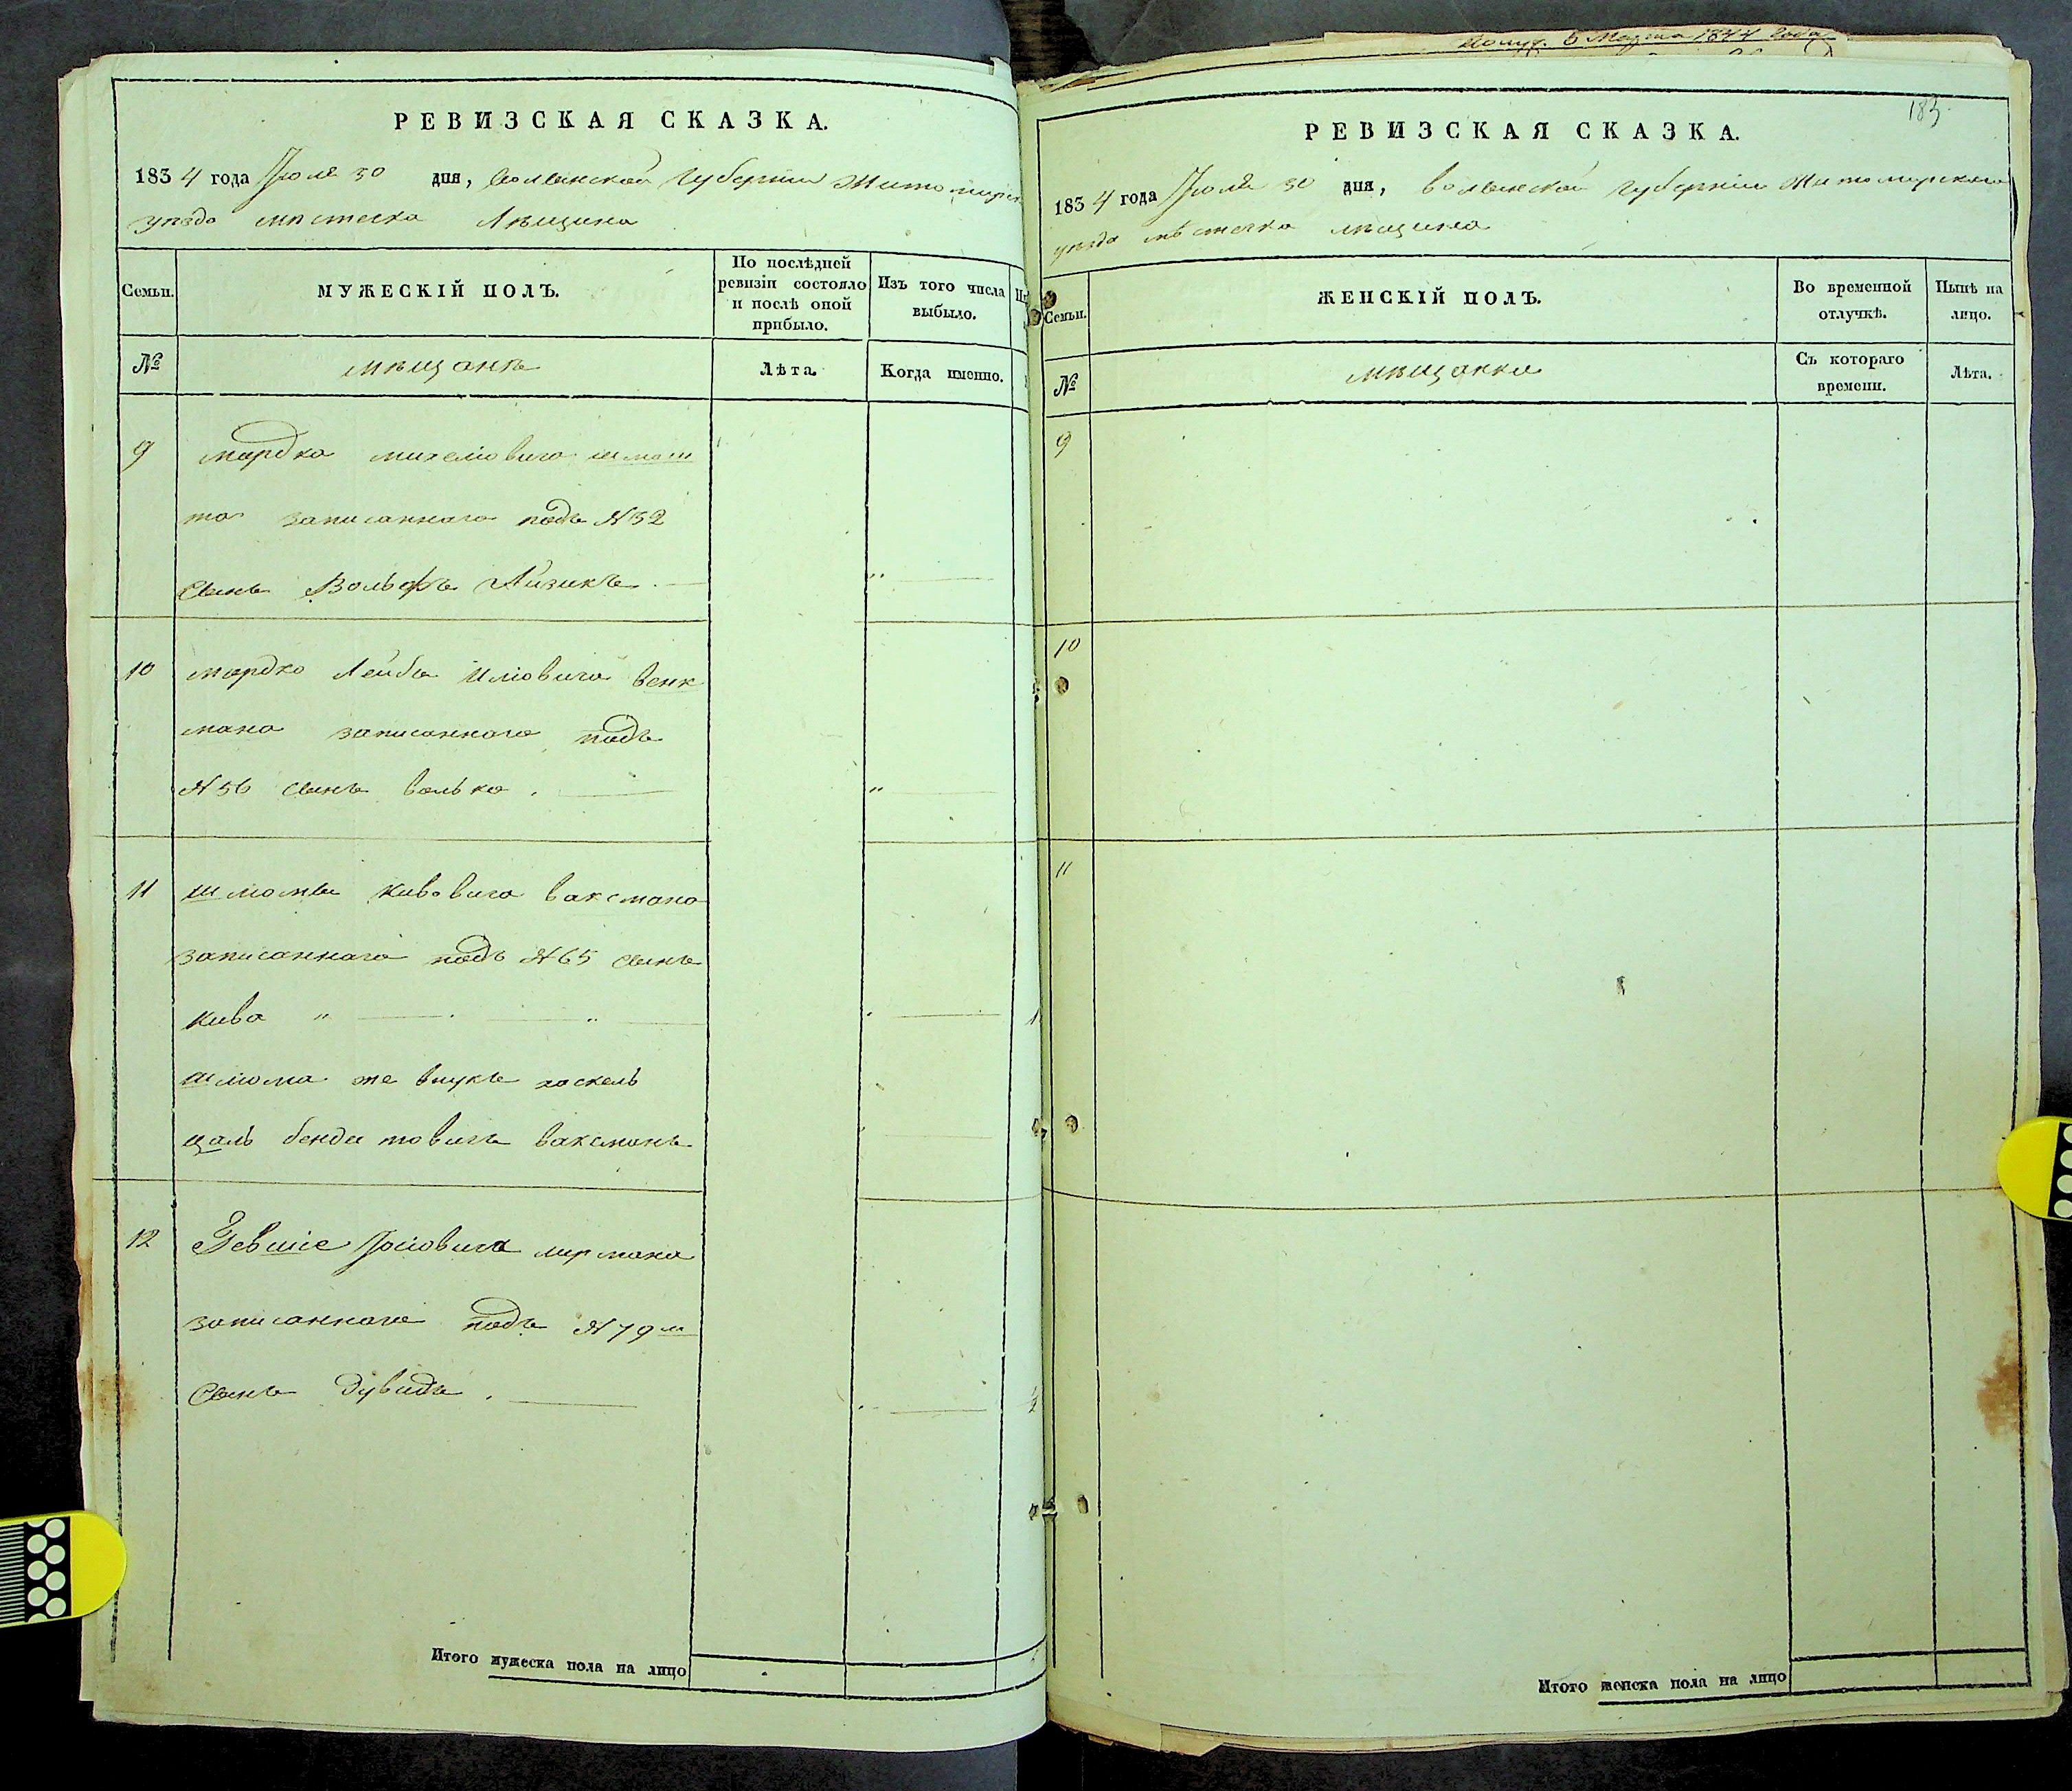 РЕВИЗСКАЯ СКАЗКА.
1834 года Іюля 30 дня, Волынской Губерніи Житомирск
уѣзда мѣстечка Лѣщина
Семьи.
МУЖЕСКІЙ ПОЛЪ.
По послѣдней ревизіи состояло и послѣ оной прибыло.
Изъ того числа выбыло.
№
мѣщанъ
Лѣта.
Когда именно.
9 мордка михелiовича шмош
та записаннаго подъ №32
Сынъ Вольфъ Айзикъ.
10 мордко Лейба Иліовича венк
мана записаннаго подъ
№56 Сынъ волько.
11 шмомы кивовича ваксмана
записаннаго подъ №65 Сынъ
кива
шмома же внукъ хаскель
цаль бендитовичъ ваксманъ
12 Іосіовича лирмана
записаннаго подъ №79м
Сынъ Дувидъ.
Итого мужеска пола на лицо
получ. 6 1844 года
183
РЕВИЗСКАЯ СКАЗКА.
1834 года Іюля 30 дня, волынской губерніи Житомирскаго
уѣзда мѣстечка лѣщина
Семьи.
ЖЕНСКІЙ ПОЛЪ.
Во временной отлучкѣ.
Нынѣ на лицо.
№
мѣщанки
Съ котораго времени.
Лѣта.
9
10
11
Итого женска пола на лицо